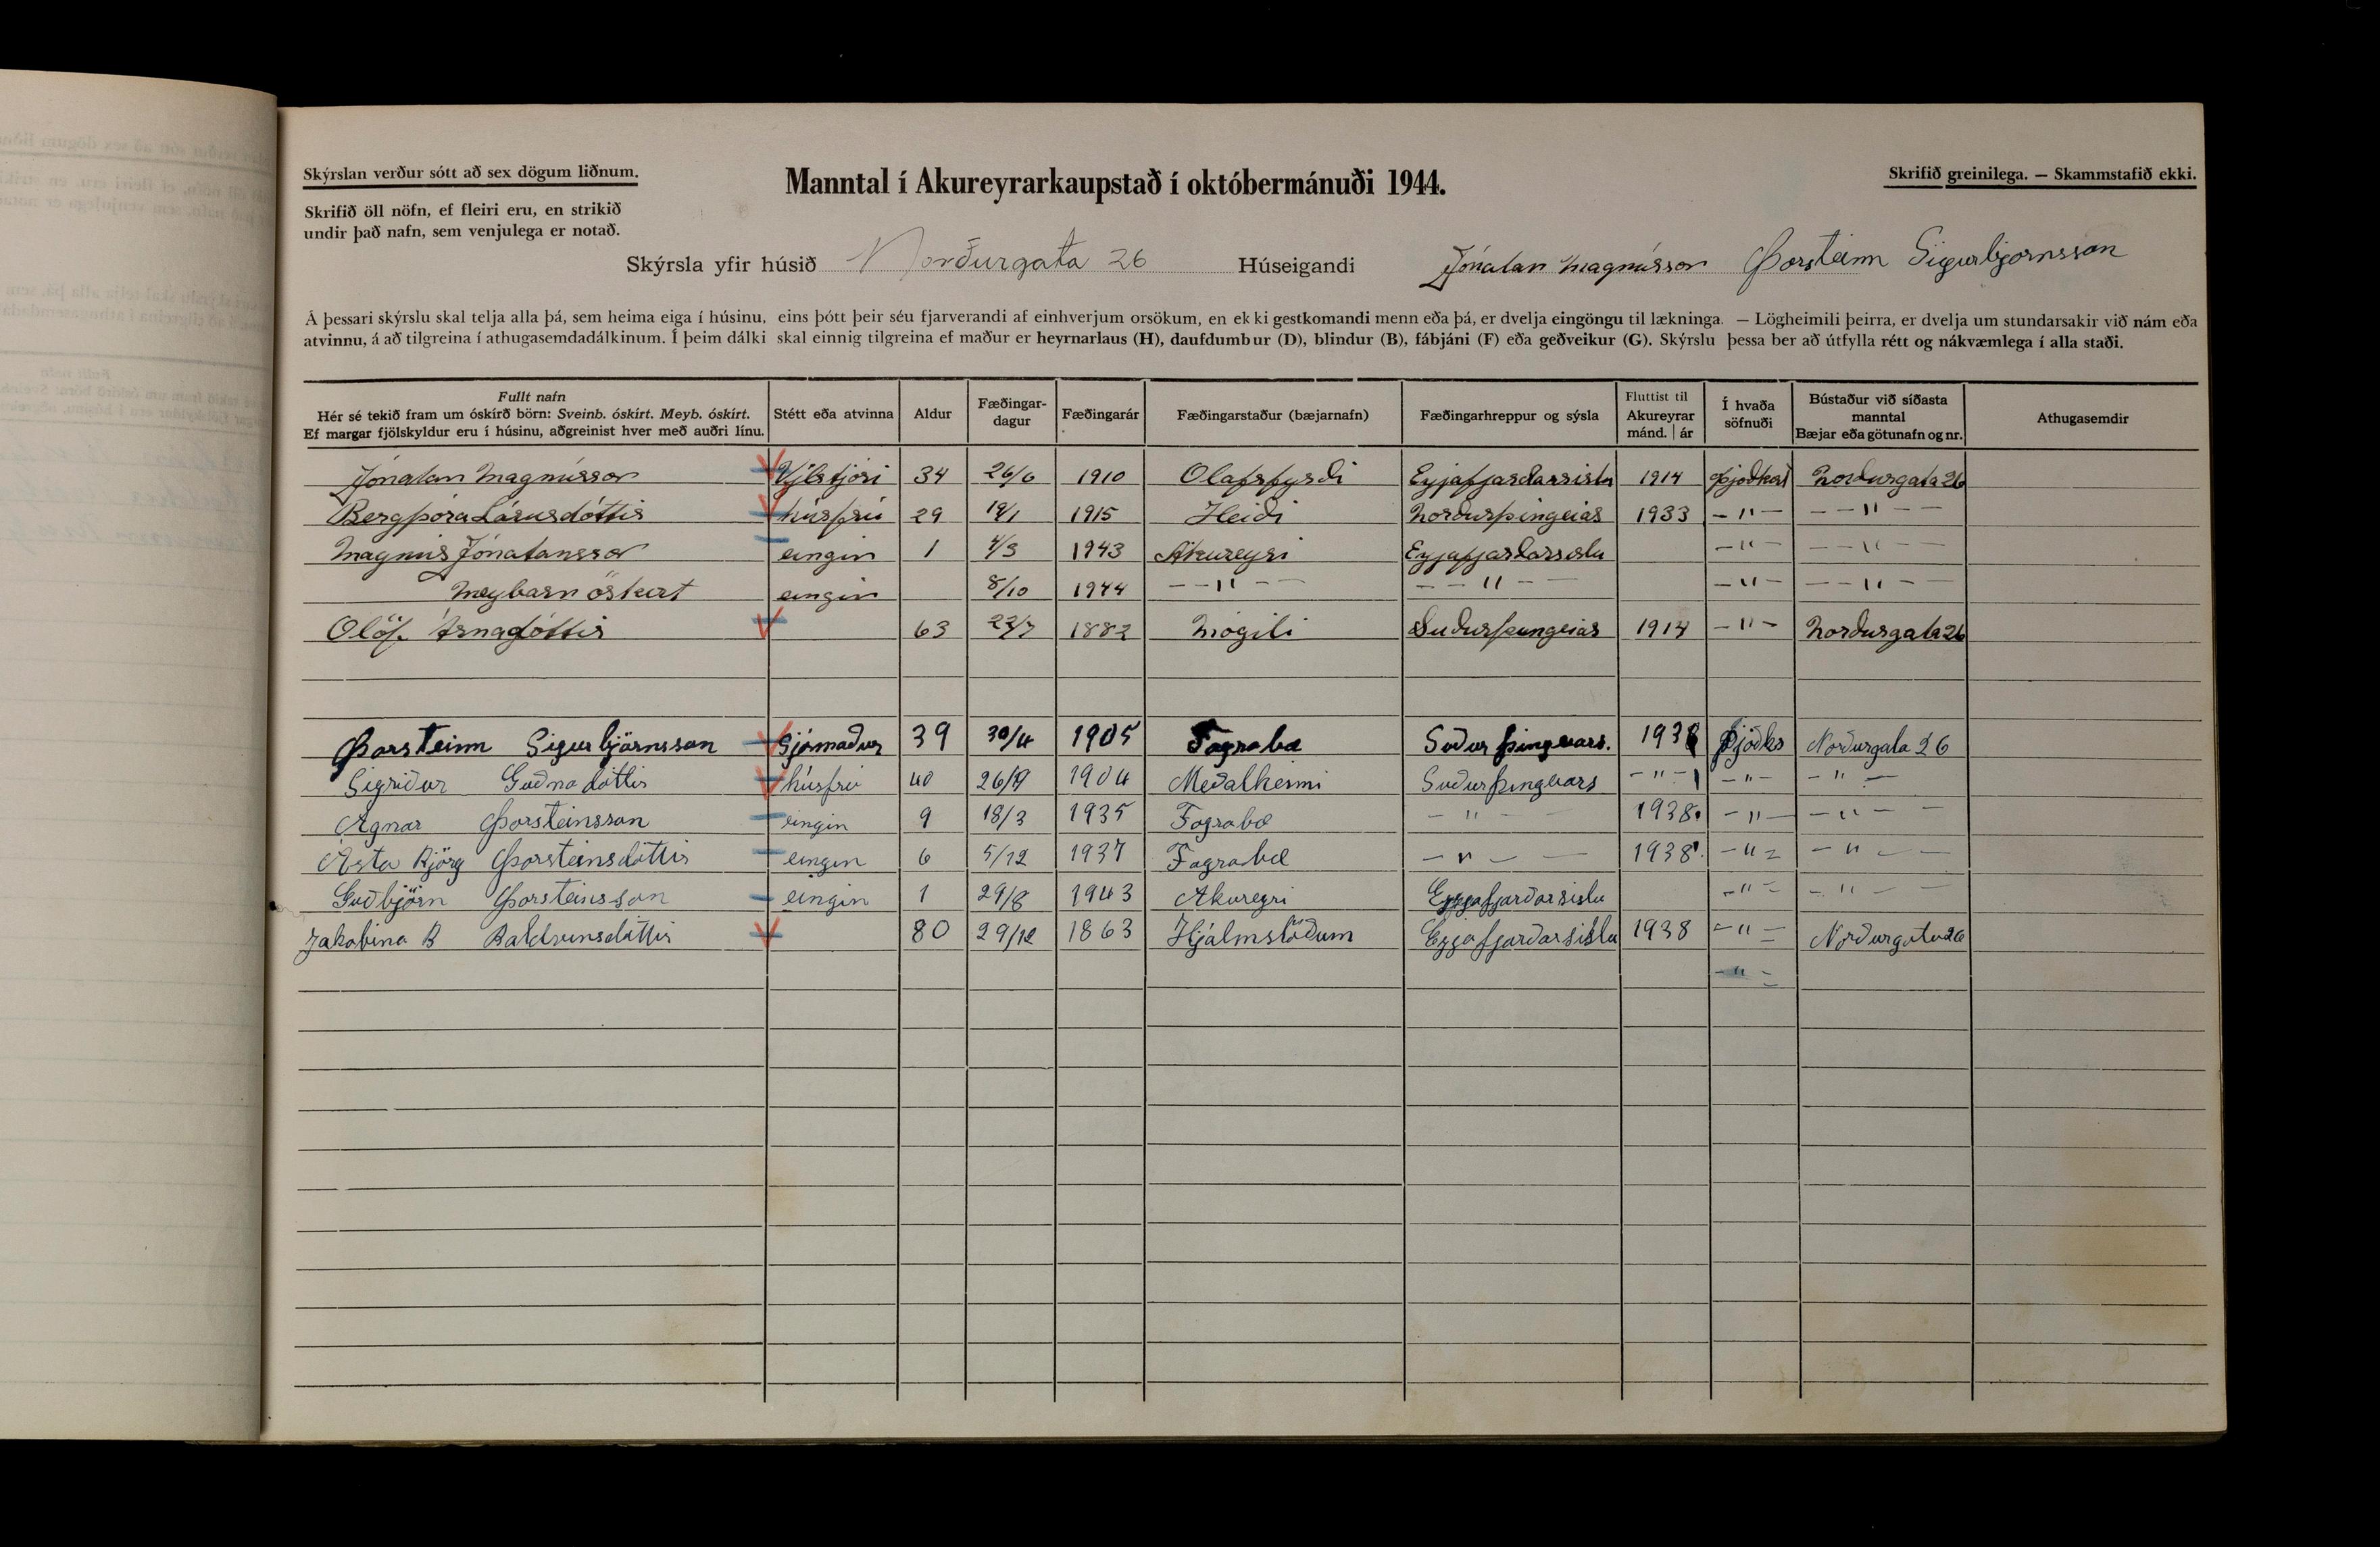 Skýrslan verður sótt að sex dögum liðnum.
Manntal í Akureyrarkaupstað í októbermánuði 1944.
Skrifið greinilega. — Skammstafið ekki.
Skrifið öll nöfn, ef fleiri eru, en strikið
undir það nafn, sem venjulega er notað.
Skýrsla yfir húsið Norðurgata 26 Húseigandi Jónatan Magnússon Þorsteinn Sigurbjornsson
Á þessari skýrslu skal telja alla þá, sem heima eiga í húsinu, eins þótt þeir séu fjarverandi af einhverjum orsökum, en ekki gestkomandi menn eða þá, er dvelja eingöngu til lækninga. — Lögheimili þeirra, er dvelja um stundarsakir við nám eða
atvinnu, á að tilgreina í athugasemdadálkinum. Í þeim dálki skal einnig tilgreina ef maður er heyrnarlaus (H), daufdumbur (D), blindur (B), fábjáni (F) eða geðveikur (G). Skýrslu þessa ber að útfylla rétt og nákvæmlega í alla staði.
Fullt nafn
Hér sé tekið fram um óskírð börn: Sveinb. óskírt. Meyb. óskírt.
Ef margar fjölskyldur eru í húsinu, aðgreinist hver með auðri línu.
Stétt eða atvinna
Aldur
Fæðingar-
dagur
Fæðingarár
Fæðingarstaður (bæjarnafn)
Fæðingarhreppur og sýsla
Fluttist til
Akureyrar
mánd. | ár
Í hvaða
söfnuði
Bústaður við síðasta
manntal
Bæjar eða götunafn og nr.
Athugasemdir
Jónatan Magnússon 34 26/6 1910 Olafsfyrði Eyjafjardarsislu 1914 Norðurgata 26
Bergþóra Lárusdóttir húsfrú 29 1915 Heiði Norðurþingeias 1933 – " – – – " – –
Magnús Jónatansson eingin 1 4/3 1943 Akureyri Eyjafjardarsislu – " – – – " – –
Meybarn óskert eingin 8/10 1944 – – " – – – – " – – – " – – – " – –
Olöf. Árnadóttir 63 1882 Mógili Sudurþungeias 1914 – " – Norðurgata 26
Þorsteinn Sigurbjörnsson Sjómaður 39 30/4 1905 Fagrabæ Suður Þingears. 1938 Þjóðks Norðurgata 26
Sigriður Guðnadóttir húsfrú 40 26/9 1904 Meðalheimi Suður Þingears – " – – " – – " –
Agnar Þorsteinsson eingin 9 18/3 1935 Fagrabæ – " – – 1938. – " – – " – –
Asta Björg Þorsteinsdóttir eingin 6 5/12 1937 Fagrabæ – " – – 1938. – " – – " – –
Guðbjörn Þorsteinsson eingin 1 29/8 1943 Akureyri Eyjafjarðarsislu – " – – " – –
Jakobina B Baldvinsdóttir 80 29/12 1863 Hjálmstöðum Eyjafjarðarsislu 1938 – " – Norðurgata 26
– " –